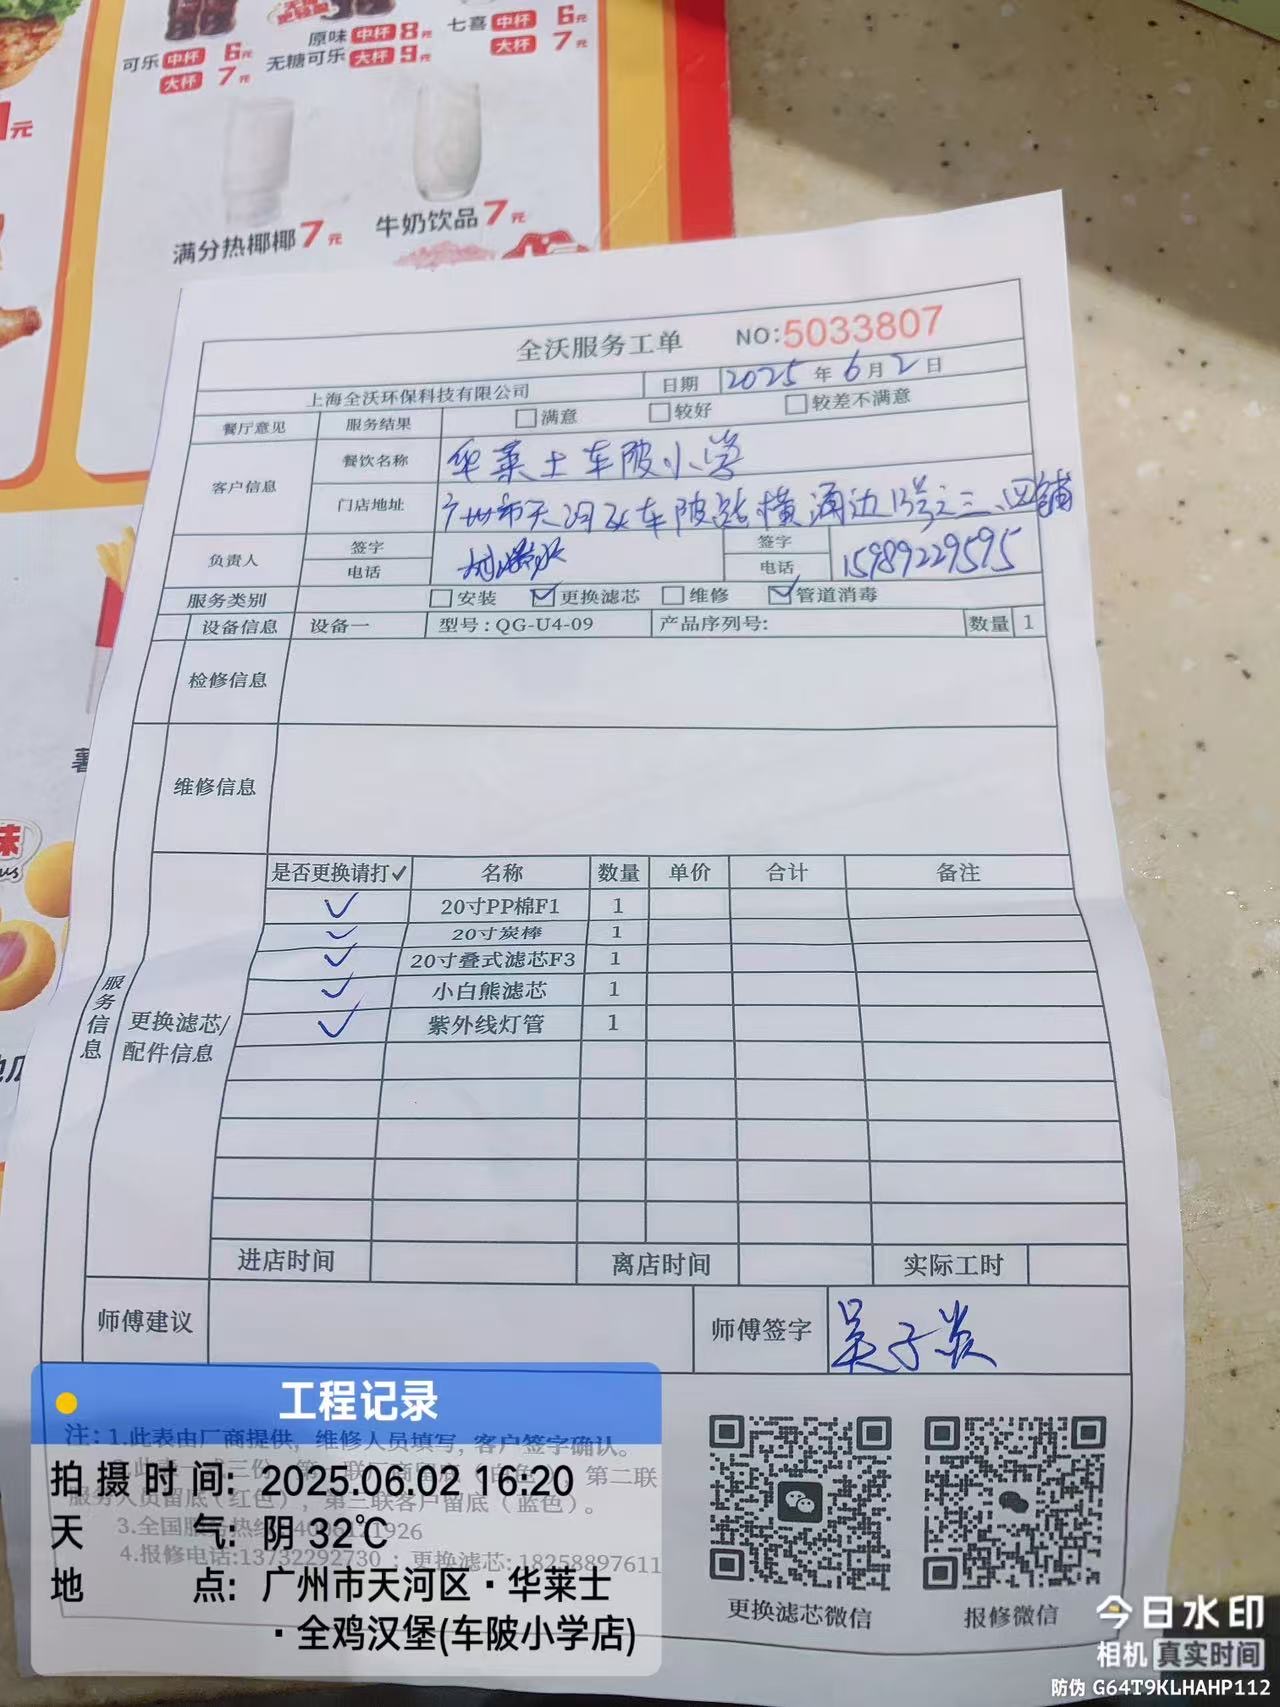 可乐 中杯 6元
大杯 7元
原味 中杯 8元
无糖可乐 大杯 9元
七喜 中杯 6元
大杯 7元
1元
满分热椰椰7元
牛奶饮品7元
全沃服务工单 NO:5033807
上海全沃环保科技有限公司 日期 2025年6月2日
餐厅意见 服务结果 满意 较好 较差不满意
客户信息 餐饮名称 华莱士车陂小学
门店地址 广州市天河区车陂路横涌边13号之三、四铺
负责人 签字 签字
电话 电话 15989229595
服务类别 安装 更换滤芯 维修 管道消毒
设备信息 设备一 型号:QG-U4-09 产品序列号: 数量 1
检修信息
维修信息
服务信息
更换滤芯/
配件信息
是否更换请打✓ 名称 数量 单价 合计 备注
✓ 20寸PP棉F1 1
✓ 20寸炭棒 1
✓ 20寸叠式滤芯F3 1
✓ 小白熊滤芯 1
✓ 紫外线灯管 1
进店时间 离店时间 实际工时
师傅建议 师傅签字 吴子炎
注:1.此表由厂商提供,维修人员填写,客户签字确认。
第二联
服务人员留底(红色),第三联客户留底(蓝色)。
3.全国服务热线
4.报修电话:13732292730;更换滤芯:18258897611
更换滤芯微信
报修微信
工程记录
拍摄时间: 2025.06.02 16:20
天气: 阴 32℃
地点: 广州市天河区·华莱士
·全鸡汉堡(车陂小学店)
今日水印
相机 真实时间
防伪 G64T9KLHAHP112